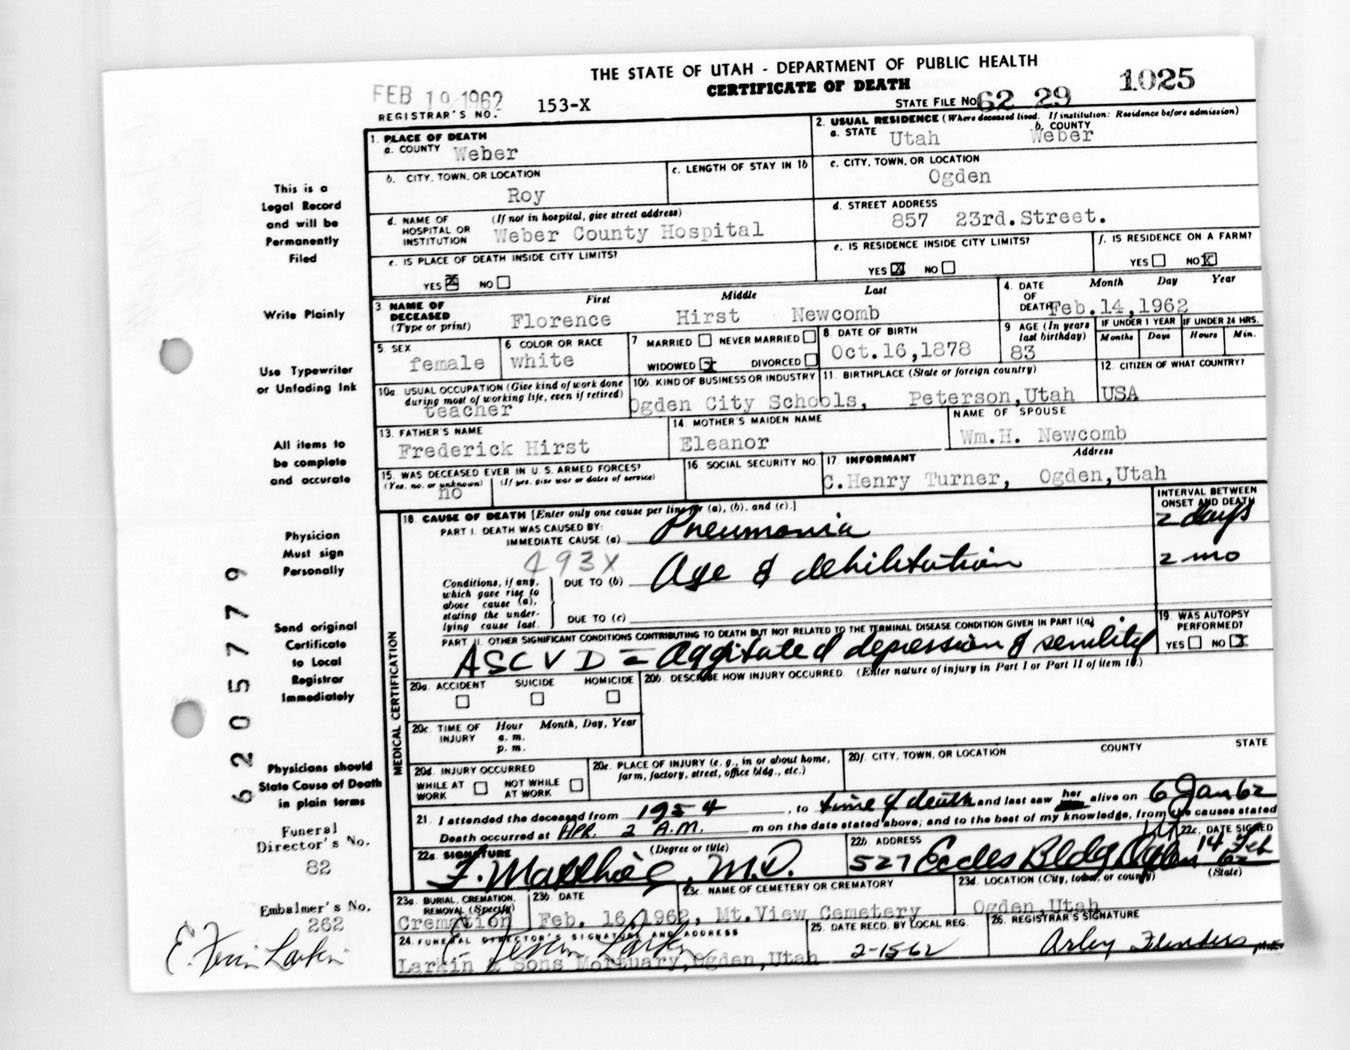 THE STATE OF UTAH - DEPARTMENT OF PUBLIC HEALTH
CERTIFICATE OF DEATH
FEB 19 1962
REGISTRAR'S NO. 153-X
STATE FILE NO. 62 29 1025
1. PLACE OF DEATH
a. COUNTY Weber
2. USUAL RESIDENCE (Where deceased lived. If institution: Residence before admission)
a. STATE Utah b. COUNTY Weber
b. CITY, TOWN, OR LOCATION Roy
c. LENGTH OF STAY IN 1b
c. CITY, TOWN, OR LOCATION Ogden
d. NAME OF HOSPITAL OR INSTITUTION (If not in hospital, give street address) Weber County Hospital
d. STREET ADDRESS 857 23rd.Street.
e. IS PLACE OF DEATH INSIDE CITY LIMITS? YES X NO
e. IS RESIDENCE INSIDE CITY LIMITS? YES X NO
f. IS RESIDENCE ON A FARM? YES NO X
3 NAME OF DECEASED (Type or print) First Middle Last
Florence Hirst Newcomb
4. DATE OF DEATH Month Day Year
Feb.14,1962
5. SEX female
6 COLOR OR RACE white
7 MARRIED NEVER MARRIED
WIDOWED X DIVORCED
8 DATE OF BIRTH Oct.16,1878
9 AGE (In years last birthday) 83
IF UNDER 1 YEAR Months Days
IF UNDER 24 HRS. Hours Min.
10a. USUAL OCCUPATION (Give kind of work done during most of working life, even if retired) teacher
10b. KIND OF BUSINESS OR INDUSTRY Ogden City Schools,
11. BIRTHPLACE (State or foreign country) Peterson,Utah
12. CITIZEN OF WHAT COUNTRY? USA
13. FATHER'S NAME Frederick Hirst
14 MOTHER'S MAIDEN NAME Eleanor
NAME OF SPOUSE Wm.H. Newcomb
15. WAS DECEASED EVER IN U.S. ARMED FORCES? (Yes, no, or unknown) (If yes, give war or dates of service) no
16. SOCIAL SECURITY NO.
17 INFORMANT Address
C.Henry Turner, Ogden,Utah
18. CAUSE OF DEATH [Enter only one cause per line for (a), (b), and (c).]
INTERVAL BETWEEN ONSET AND DEATH
PART I. DEATH WAS CAUSED BY:
IMMEDIATE CAUSE (a) Pneumonia 2 days
493X
Conditions, if any, which gave rise to above cause (a), stating the underlying cause last.
DUE TO (b) Age & debilitation 2 mo
DUE TO (c)
PART II. OTHER SIGNIFICANT CONDITIONS CONTRIBUTING TO DEATH BUT NOT RELATED TO THE TERMINAL DISEASE CONDITION GIVEN IN PART I(a)
ASCVD = Aggitated depression & senility
19. WAS AUTOPSY PERFORMED? YES NO X
20a. ACCIDENT SUICIDE HOMICIDE
20b. DESCRIBE HOW INJURY OCCURRED. (Enter nature of injury in Part I or Part II of item 18.)
20c. TIME OF INJURY Hour a. m. p. m. Month, Day, Year
20d. INJURY OCCURRED
WHILE AT WORK NOT WHILE AT WORK
20e. PLACE OF INJURY (e. g., in or about home, farm, factory, street, office bldg., etc.)
20f. CITY, TOWN, OR LOCATION COUNTY STATE
21. I attended the deceased from 1954, to time of death and last saw her alive on 6 Jan 62
Death occurred at Apr. 2 A.M. m on the date stated above; and to the best of my knowledge, from the causes stated
22a. SIGNATURE (Degree or title) M.D.
22b. ADDRESS 527 Eccles Bldg Ogden
22c. DATE SIGNED 14 Feb 62
23a. BURIAL, CREMATION, REMOVAL (Specify) Cremation
23b DATE Feb. 16,1962,
23c. NAME OF CEMETERY OR CREMATORY Mt.View Cemetery
23d. LOCATION (City, town, or county) (State) Ogden,Utah
24. FUNERAL DIRECTOR'S SIGNATURE AND ADDRESS
Larkin & Sons Mortuary,Ogden,Utah
25. DATE RECD. BY LOCAL REG. 2-15-62
26. REGISTRAR'S SIGNATURE
MEDICAL CERTIFICATION
This is a
Legal Record
and will be
Permanently
Filed
Write Plainly
Use Typewriter
or Unfading Ink
All items to
be complete
and accurate
Physician
Must sign
Personally
Send original
Certificate
to Local
Registrar
Immediately
Physicians should
State Cause of Death
in plain terms
Funeral
Director's No.
82
Embalmer's No.
262
62057779